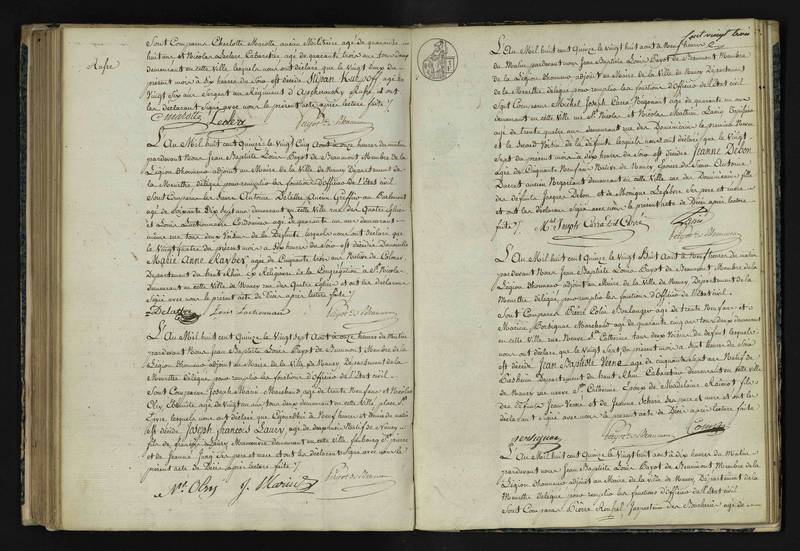 Sont Comparus Charlotte Marotte ancien Militaire agé de quarante
huit ans et Nicolas Leclerc Cabaretier agé de quarante trois ans tous deux
demeurant en cette ville lesquels nous ont déclaré que le vingt deux du
Russe
présent mois à dix heures du soir est décédé agé de
Vingt six ans Sergent au Régiment d' Russe et ont
les déclarant Signé avec nous le présent acte après lecture faite
Marotte Leclerc Payot de Beaumont
L'An Mil huit cent Quinze le Vingt Cinq Aout à onze heures du matin
pardevant Nous Jean Baptiste Louis Payot de Beaumont Membre de la
Légion d'honneur adjoint au Maire de la Ville de Nancy Département de
la Meurthe délégué pour remplir les fonctions d'Officier de l'Etat civil
Sont Comparus les Sieurs Antoine Delattre Ancien Greffier au
agé de Soixante Dix Sept ans demeurant en cette Ville rue des Quatre Eglises
et Louis Cordonnier agé de quarante un ans demeurant
même rue tous deux Voisins de la Défunte lesquels nous ont déclaré que
le Vingt quatre du présent mois à dix heures du Soir est décédée Demoiselle
Marie Anne agé de Cinquante trois ans Native de Colmar
Département du haut Rhin Religieuse de la Congrégation St Nicolas
demeurant en cette Ville de Nancy rue des Quatre Eglises et ont les déclarans
Signé avec nous le présent acte de Décès après lecture faite
Delattre Louis Payot de Beaumont
L'An Mil huit cent Quinze le Vingt Sept Aout à onze heures du Matin
pardevant Nous Jean Baptiste Louis Payot de Beaumont Membre de la
Légion d'honneur adjoint au Maire de la Ville de Nancy Département de la
Meurthe délégué pour remplir les fonctions d'Officier de l'Etat civil
Sont Comparus Joseph Marie Marchand agé de trente Neuf ans et Nicolas
Olry Ebéniste agé de Vingt un ans tous deux demeurant en cette Ville place St
lesquels nous ont déclaré que Aujourd'hui à Neuf heures et demie du matin
est décédé Joseph François Laury agé de Natif de Nancy
fils de françois Laury demeurant en cette Ville faubourg St pierre
et de Jeanne ses pere et mere et ont les déclarans signé avec nous le
présent acte de Décès après lecture faite
Nas Olry J. Marie Payot de Beaumont
cent vingt trois
L'An Mil huit cent Quinze le vingt huit aout à Neuf heures
du Matin pardevant Nous Jean Baptiste Louis Payot de Beaumont Membre
de la Légion d'honneur adjoint au Maire de la Ville de Nancy Département
de la Meurthe délégué pour remplir les fonctions d'Officier de l'Etat civil
Sont Comparus Michel Joseph agé de quarante un ans
demeurant en cette Ville rue St Nicolas et Nicolas Mathieu
agé de trente quatre ans demeurant rue des Dominicains le premier
et le second Voisin de la défunte lesquels nous ont déclaré que le Vingt
Sept du présent mois à dix heures du Soir est décédée Jeanne Debon
agée de Cinquante Neuf ans Native de Nancy Epouse de Sieur Antoine
ancien Négociant demeurant en cette Ville rue des Dominicains fille
de défunts Jacques Debon et de Monique Lefebvre ses pere et mere
et ont les déclarans Signé avec nous le présent acte de Décès après lecture
faite
Payot de Beaumont
L'An Mil huit cent Quinze le Vingt Huit Aout à Neuf heures du matin
pardevant Nous Jean Baptiste Louis Payot de Beaumont Membre de la
Légion d'honneur adjoint au Maire de la Ville de Nancy Département de la
Meurthe délégué pour remplir les fonctions d'Officier de l'Etat civil
Sont Comparus Pierre Colin Boulanger agé de trente Neuf ans et
Maxime agé de quarante cinq ans tous deux demeurant
en cette Ville rue Neuve Ste Catherine tous deux Voisins du défunt lesquels
nous ont déclaré que le Vingt Sept du présent mois à huit heures du Soir
est décédé Jean Baptiste agé de cinquante sept ans Natif de
Département du haut Rhin demeurant en cette Ville
de Nancy rue neuve Ste Catherine Epoux de Madelaine fils
de défunts Jean et de Jeanne ses pere et mere et ont les
déclarans Signé avec nous le présent acte de Décès après lecture faite
Payot de Beaumont
L'An Mil huit cent Quinze le Vingt huit aout à dix heures du Matin
pardevant Nous Jean Baptiste Louis Payot de Beaumont Membre de la
Légion d'honneur adjoint au Maire de la Ville de Nancy Département de la
Meurthe délégué pour remplir les fonctions d'Officier de l'Etat civil
Sont Comparus Pierre Inspecteur des Boucheries agé de